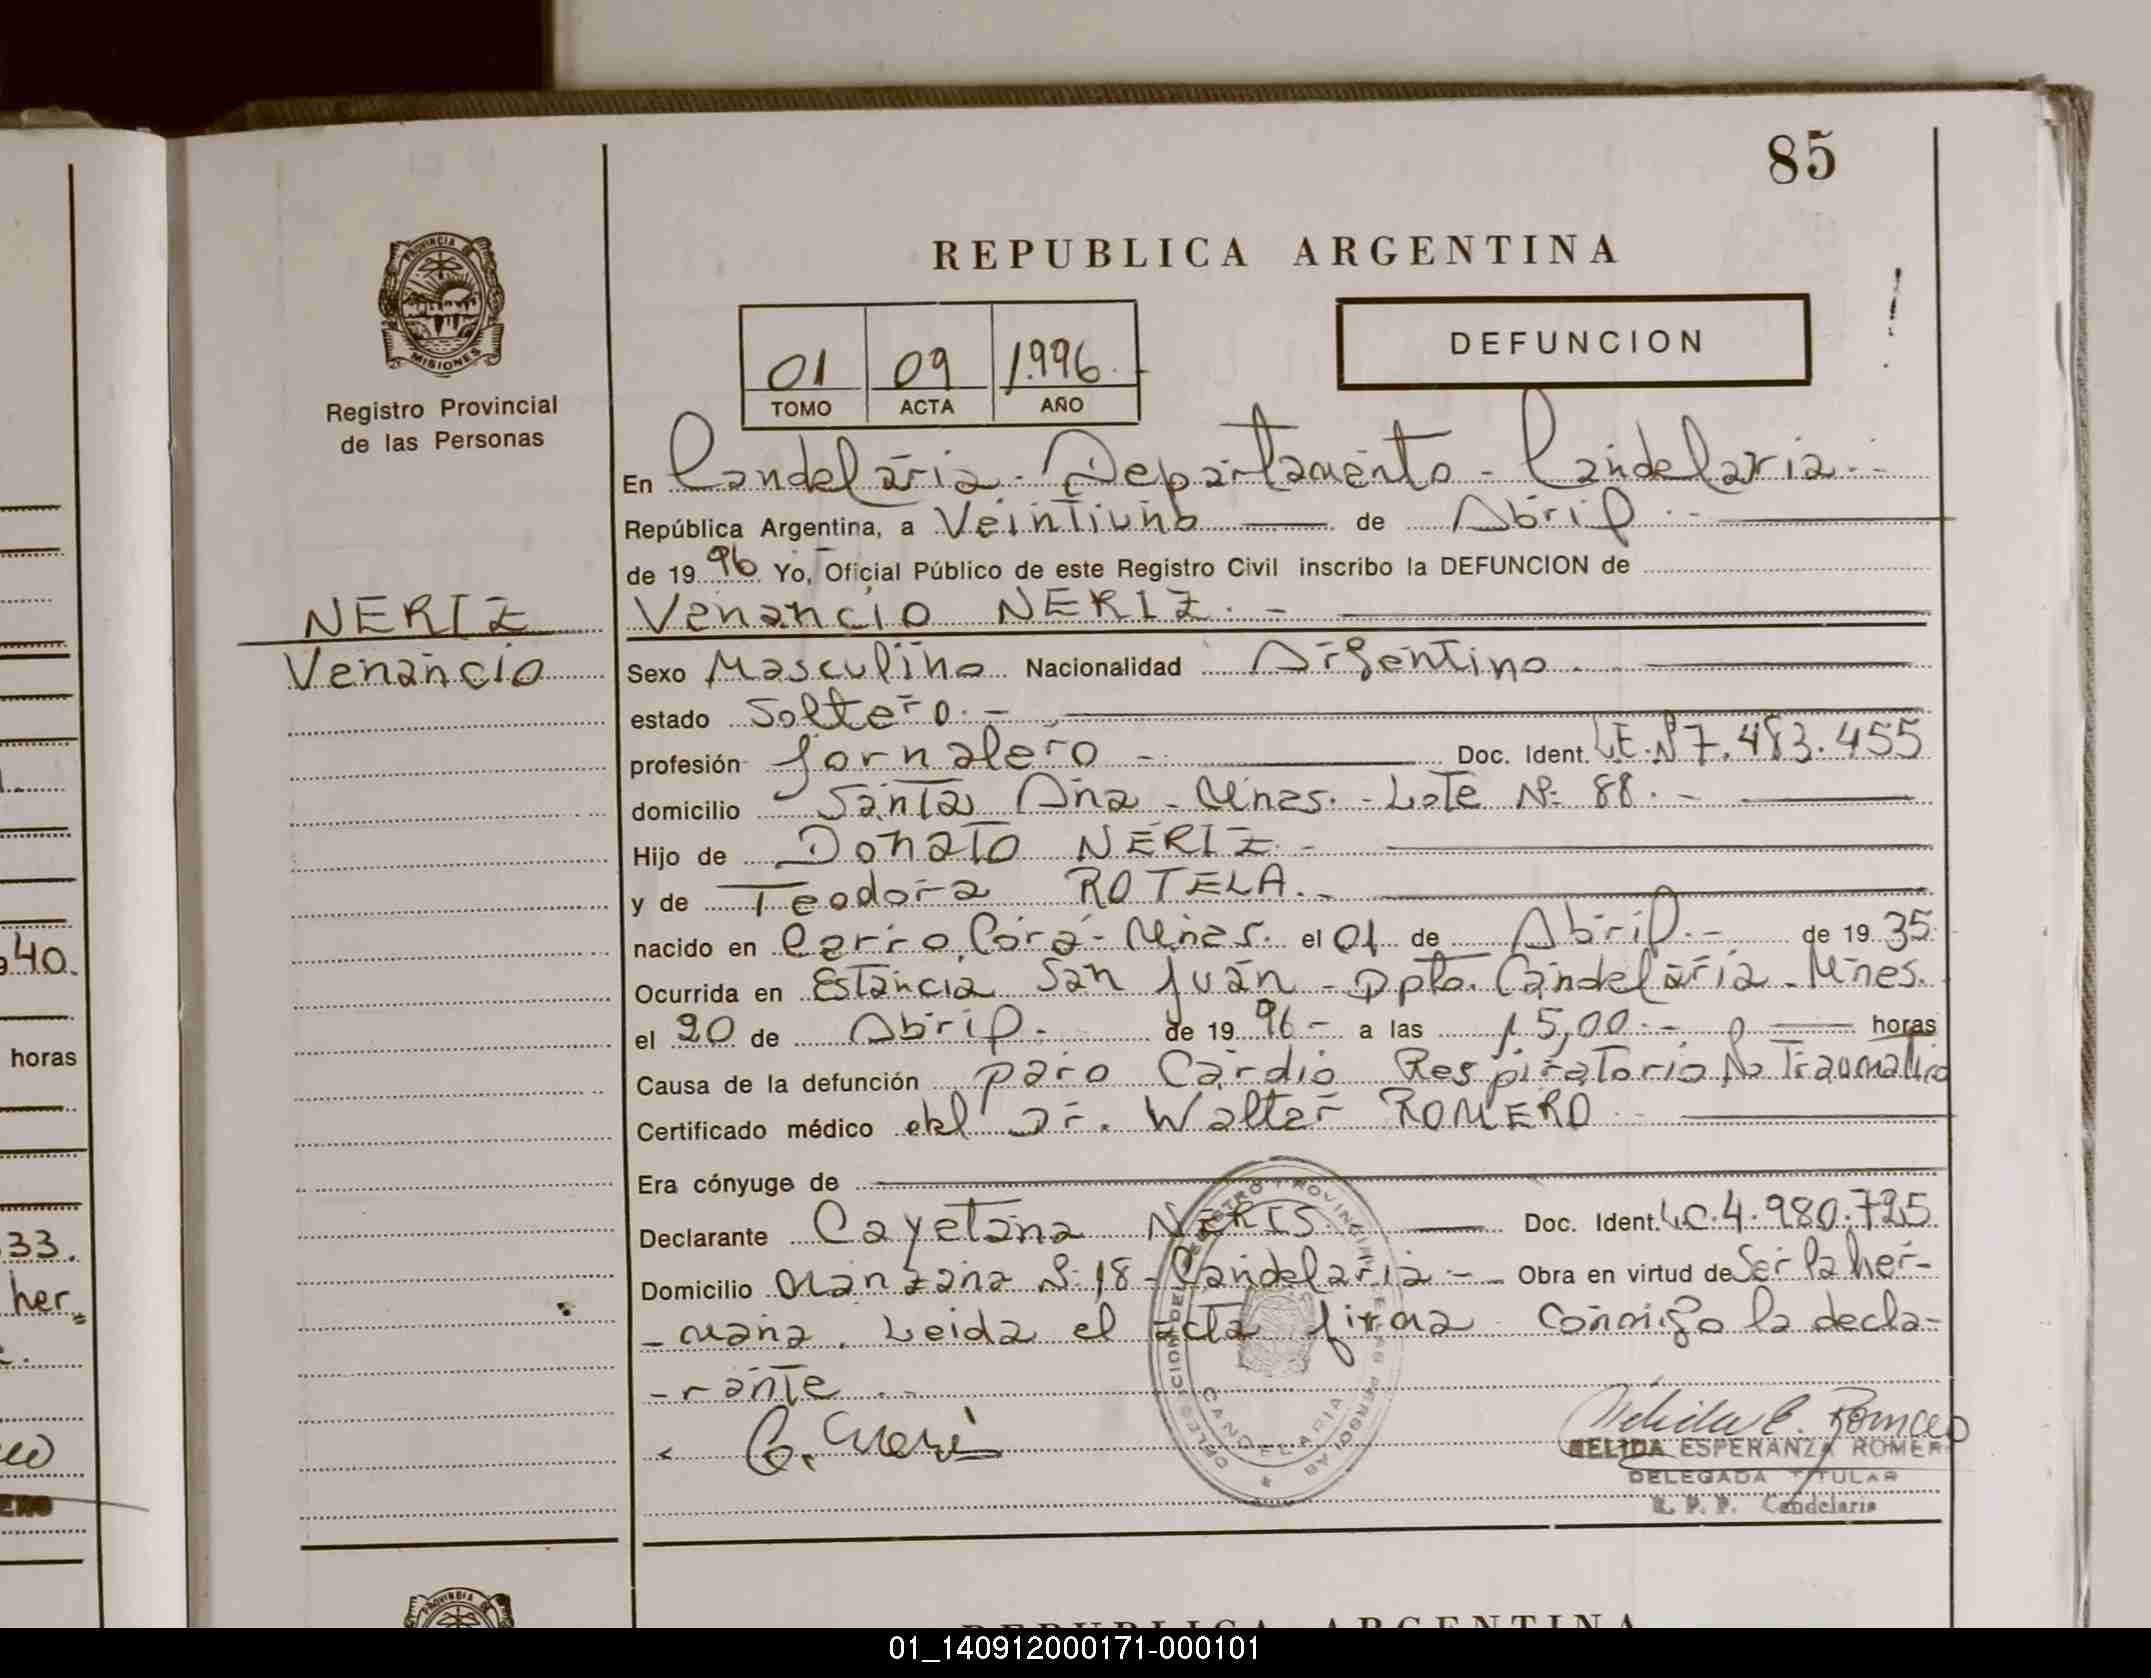 85
PROVINCIA DE
MISIONES
Registro Provincial
de las Personas
REPUBLICA ARGENTINA
01 09 1.996.
TOMO ACTA AÑO
DEFUNCION
En Candelaria - Departamento - Candelaria.-
República Argentina, a Veintiuno de Abril.-
de 1996 Yo, Oficial Público de este Registro Civil inscribo la DEFUNCION de
NERIZ
Venancio
Venancio NERIZ.-
Sexo Masculino Nacionalidad Argentino
estado Soltero.-
profesión Jornalero - Doc. Ident. L.E. Nº 7.483.455
domicilio Santa Ana - Mnes. - Lote Nº 88.-
Hijo de Donato NERIZ.-
y de Teodora ROTELA.-
nacido en Cerro Corá - Mnes. el 01 de Abril.- de 1935.
Ocurrida en Estancia San Juan - Dpto. Candelaria - Mnes.
el 20 de Abril.- de 1996- a las 15,00.- horas
Causa de la defunción paro Cardio Respiratorio No Traumatico
Certificado médico del Dr. Walter ROMERO
Era cónyuge de
Declarante Cayetana NERIS. Doc. Ident. L.C. 4.980.725
Domicilio Manzana Nº 18 - Candelaria - Obra en virtud de Ser la her-
-mana. Leida el acta firma conmigo la decla-
-rante.-
NELIDA ESPERANZA ROMER
DELEGADA TITULAR
R. P. P. Candelaria
CANDELARIA
40.
horas
33.
her
REPUBLICA ARGENTINA
01_140912000171-000101